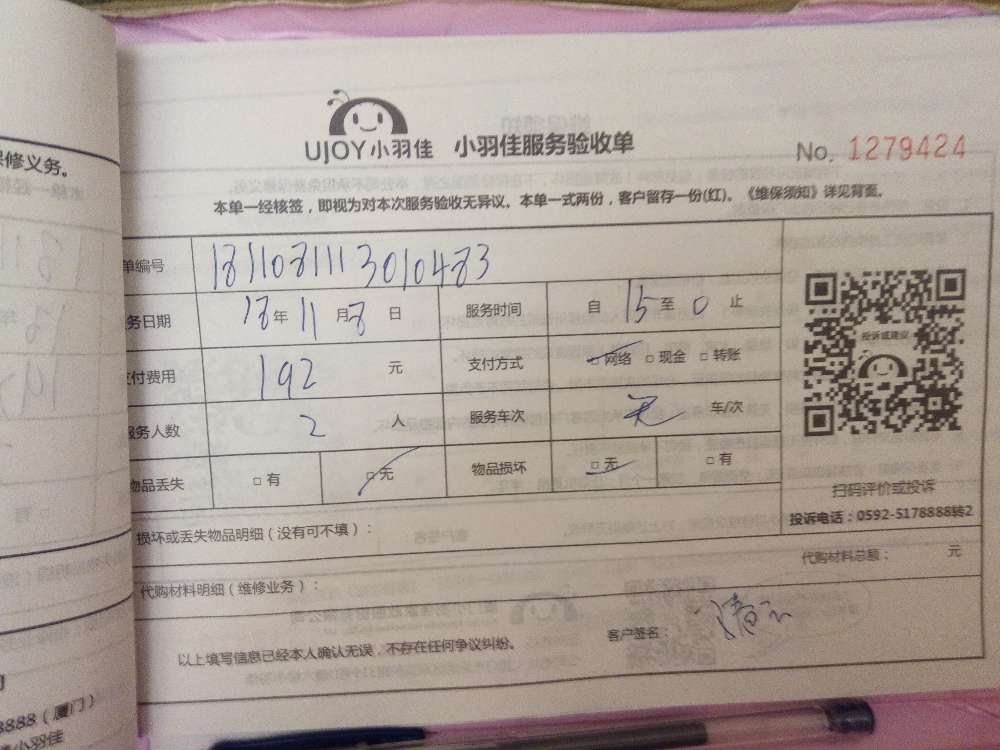 修义务。
UJOY小羽佳 小羽佳服务验收单
No. 1279424
本单一经核签，即视为对本次服务验收无异议。本单一式两份，客户留存一份(红)。《维保须知》详见背面。
单编号 1811081113010483
务日期 18年11月8日 服务时间 自15至0止
支付费用 192 元 支付方式 □网络 □现金 □转账
服务人数 2 人 服务车次 无 车/次
物品丢失 □有 □无 物品损坏 □无 □有
投诉或建议
扫码评价或投诉
投诉电话：0592-5178888转2
损坏或丢失物品明细（没有可不填）：
代购材料明细（维修业务）： 代购材料总额： 元
以上填写信息已经本人确认无误，不存在任何争议纠纷。 客户签名：
8888（厦门）
小羽佳